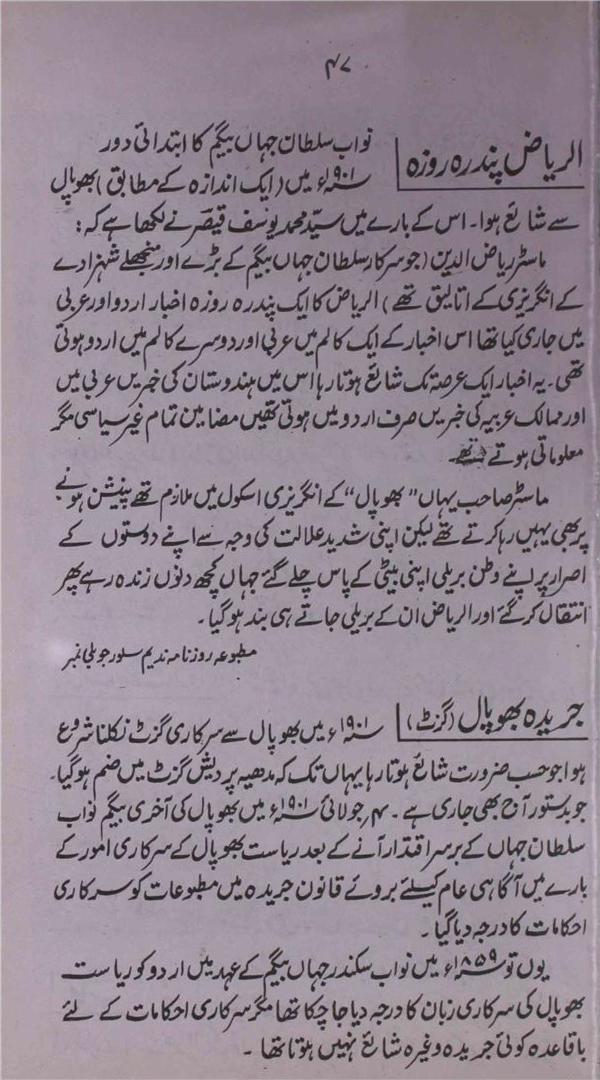 ۴۷
الریاض پندرہ روزہ
نواب سلطان جہاں بیگم کا ابتدائی دور
۱۹۰۱ء میں (ایک اندازہ کے مطابق) بھوپال
سے شائع ہوا۔ اس کے بارے میں سیّد محمد یوسف قیصر نے لکھا ہے کہ :
ماسٹر ریاض الدین (جو سرکار سلطان جہاں بیگم کے بڑے اور منجھلے شہزادے
کے انگریزی کے اتالیق تھے) الریاض کا ایک پندرہ روزہ اخبار اردو اور عربی
میں جاری کیا تھا اس اخبار کے ایک کالم میں عربی اور دوسرے کالم میں اردو ہوتی
تھی۔ یہ اخبار ایک عرصہ تک شائع ہوتا رہا اس میں ہندوستان کی خبریں عربی میں
اور ممالک عربیہ کی خبریں صرف اردو میں ہوتی تھیں مضامین تمام غیر سیاسی مگر
معلوماتی ہوتے تھے۔
ماسٹر صاحب یہاں "بھوپال" کے انگریزی اسکول میں ملازم تھے پنیشن ہونے
پر بھی یہیں رہا کرتے تھے لیکن اپنی شدید علالت کی وجہ سے اپنے دوستوں کے
اصرار پر اپنے وطن بریلی اپنی بیٹی کے پاس چلے گئے جہاں کچھ دنوں زندہ رہے پھر
انتقال کر گئے اور الریاض ان کے بریلی جاتے ہی بند ہو گیا۔
مطبوعہ روزنامہ ندیم سلور جوبلی نمبر
جریدہ بھوپال (گزٹ)
۱۹۰۱ء میں بھوپال سے سرکاری گزٹ نکلنا شروع
ہوا جو حسب ضرورت شائع ہوتا رہا یہاں تک کہ مدھیہ پردیش گزٹ میں ضم ہو گیا۔
جو بدستور آج بھی جاری ہے۔ ۴؍ جولائی ۱۹۰۱ء میں بھوپال کی آخری بیگم نواب
سلطان جہاں کے برسر اقتدار آنے کے بعد ریاست بھوپال کے سرکاری امور کے
بارے میں آگاہی عام کیلئے بروئے قانون جریدہ میں مطبوعات کو سرکاری
احکامات کا درجہ دیا گیا۔
یوں تو ۱۸۵۹ء میں نواب سکندر جہاں بیگم کے عہد میں اردو کو ریاست
بھوپال کی سرکاری زبان کا درجہ دیا جا چکا تھا مگر سرکاری احکامات کے لئے
باقاعدہ کوئی جریدہ وغیرہ شائع نہیں ہوتا تھا۔